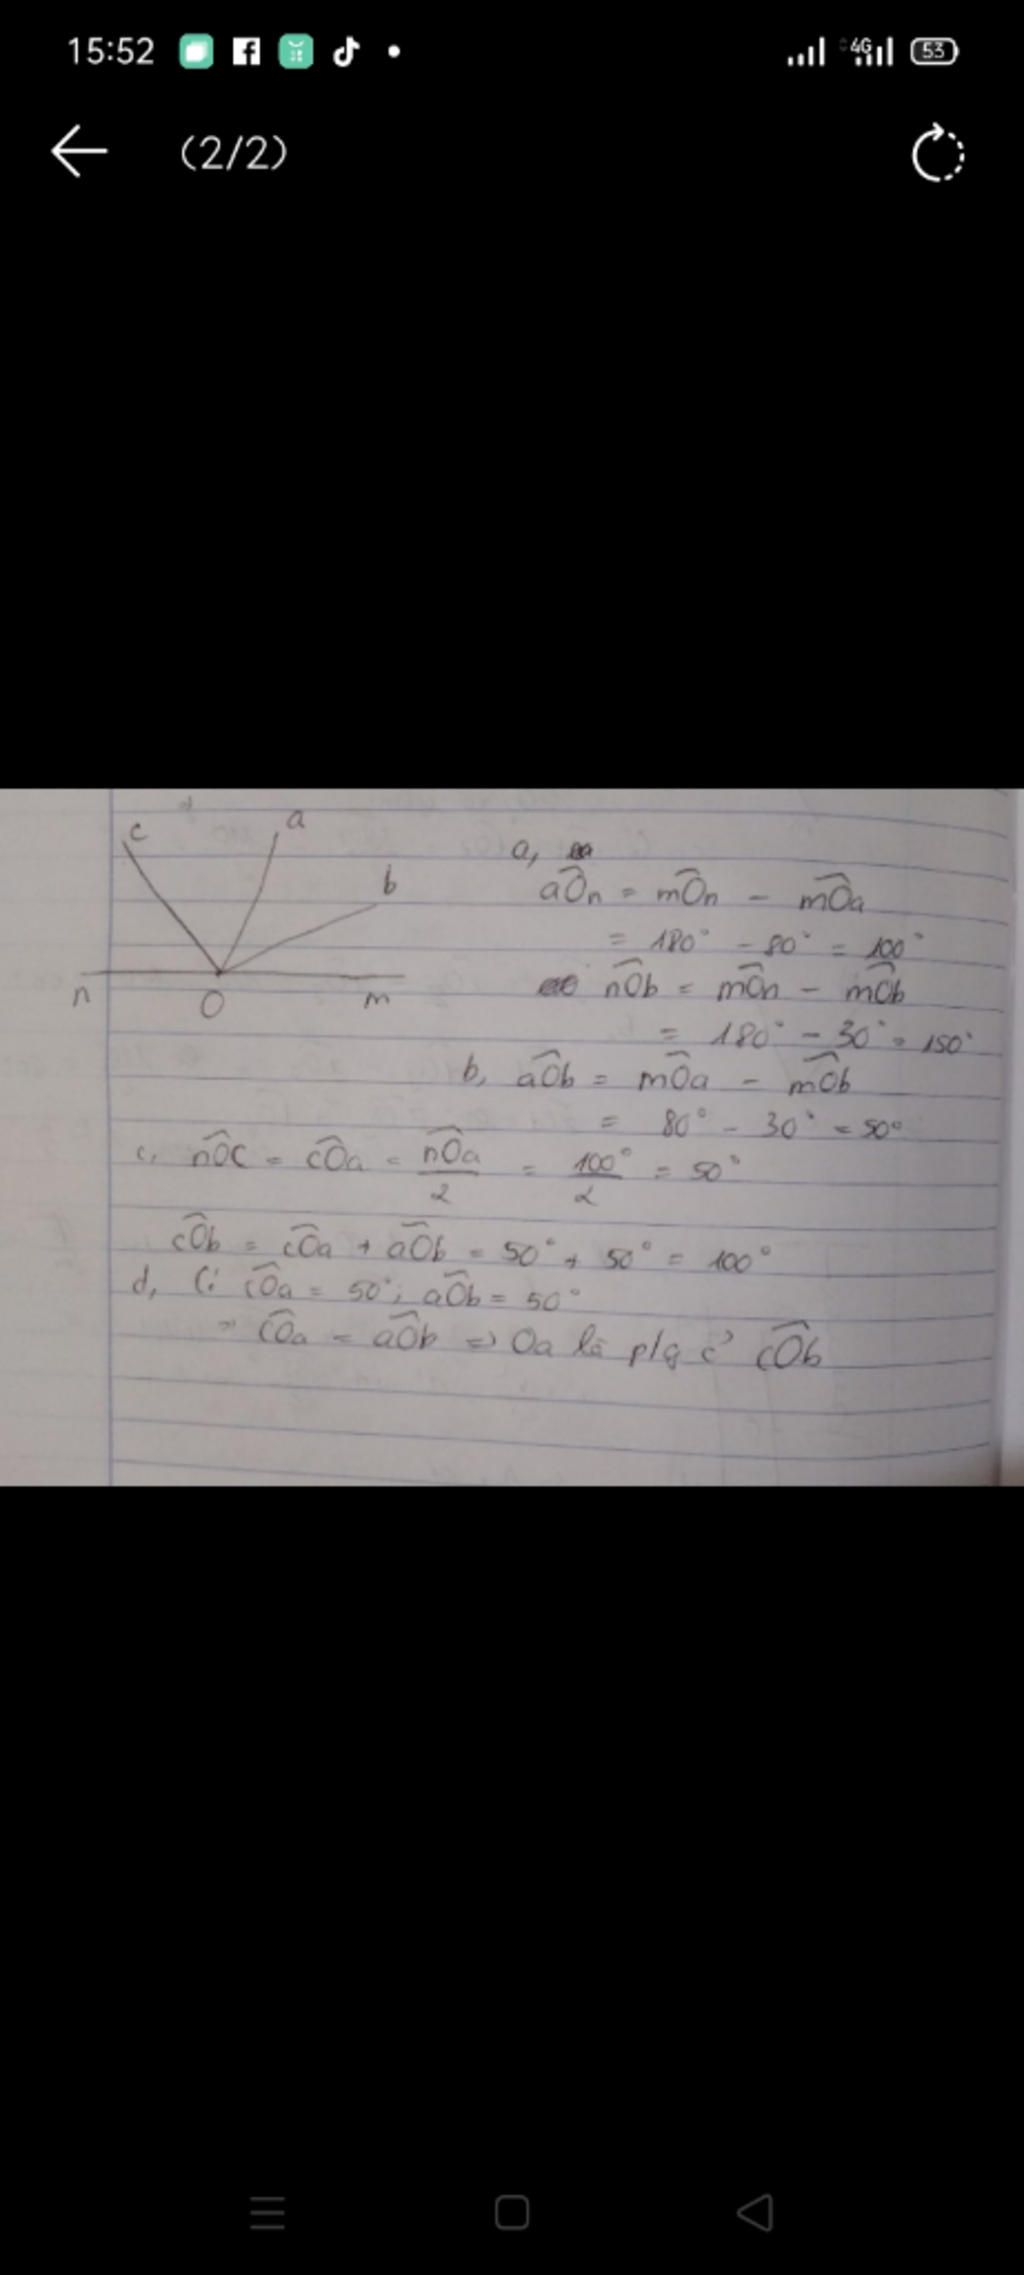 15:52 4G 53
(2/2)
c a b
n O m
a,
aÔn = mÔn - mÔa
= 180° - 80° = 100°
nÔb = mÔn - mÔb
= 180° - 30° = 150°
b, aÔb = mÔa - mÔb
= 80° - 30° = 50°
c, nÔC = cÔa = nÔa/2 = 100°/2 = 50°
cÔb = cÔa + aÔb = 50° + 50° = 100°
d, C: cÔa = 50°; aÔb = 50°
=> cÔa = aÔb => Oa là p/g c̉ cÔb